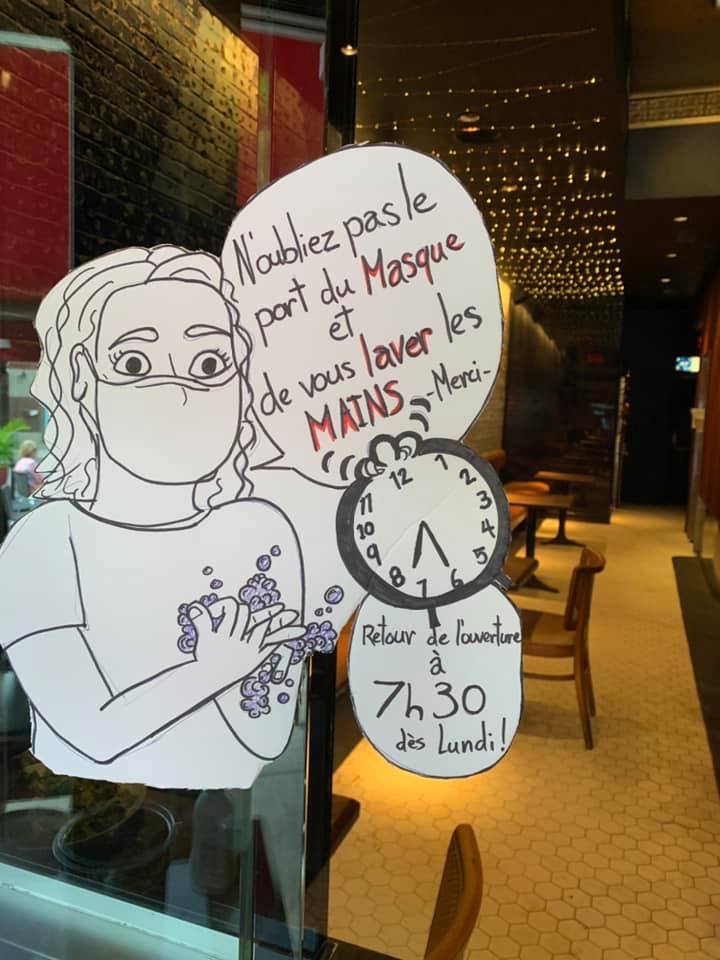 N'oubliez pas le
port du Masque
et
de vous laver les
MAINS -Merci-
12
1
2
3
4
5
6
7
8
9
10
11
Retour de l'ouverture
à
7h30
dès Lundi!